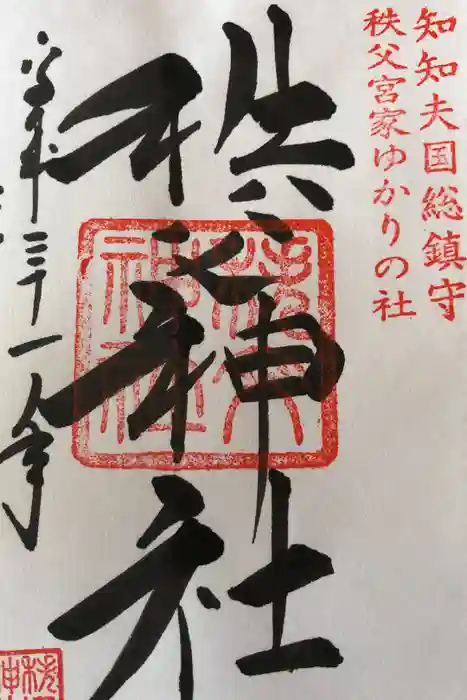 知知夫国総鎮守
秩父宮家ゆかりの社
秩父神社
秩父神社
平成三十一年